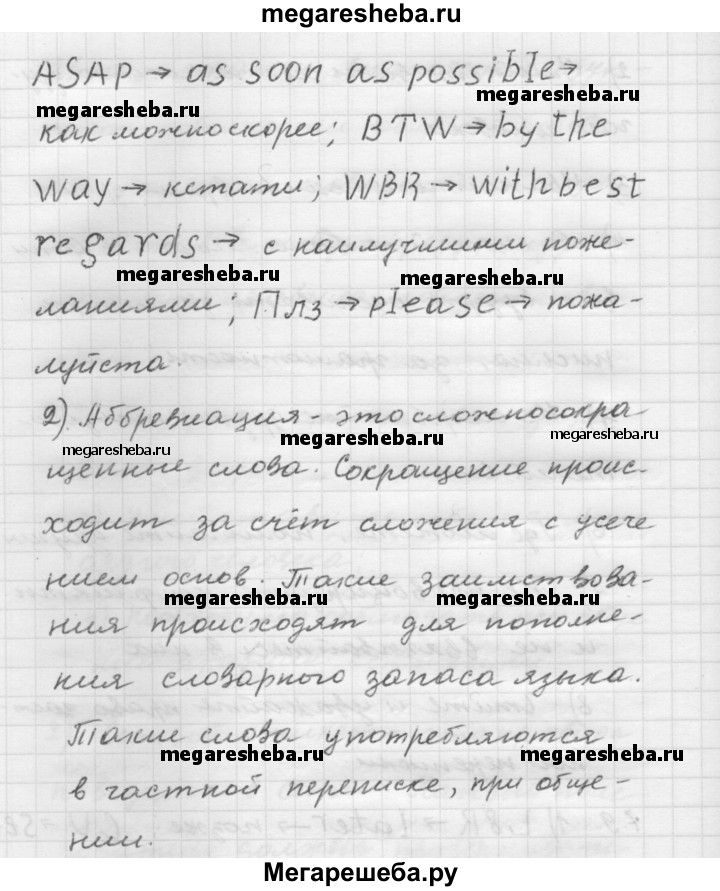 megaresheba.ru
ASAP → as soon as possible →
megaresheba.ru
megaresheba.ru
как можно скорее; BTW → by the
way → кстати; WBR → with best
regards → с наилучшими поже-
megaresheba.ru
megaresheba.ru
ланиями; Плз → please → пожа-
луйста.
2) Аббревиация - это сложносокра
megaresheba.ru
megaresheba.ru
megaresheba.ru
щенные слова. Сокращение проис-
ходит за счёт сложения с усече
нием основ. Такие заимствова-
megaresheba.ru
megaresheba.ru
ния происходят для пополне-
ния словарного запаса языка.
Такие слова употребляются
megaresheba.ru
megaresheba.ru
в частной переписке, при обще-
нии.
Мегарешеба.ру